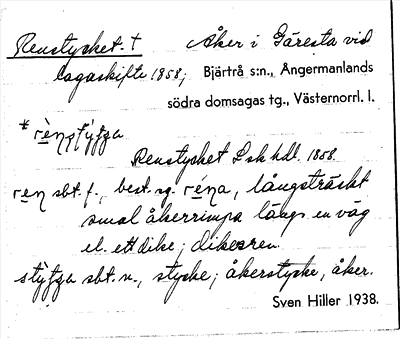 Renstycket. † Åker i Gäresta vid
lagaskifte 1858; Bjärtrå s:n., Ångermanlands
södra domsagas tg., Västernorrl. l.
Renstycket Lskhdl. 1858.
ren sbt. f., best. sg. réna, långsträckt
smal åkerrimpa längs en väg
el. ett dike; dikesren.
sbt. n., stycke; åkerstycke, åker.
Sven Hiller 1938.